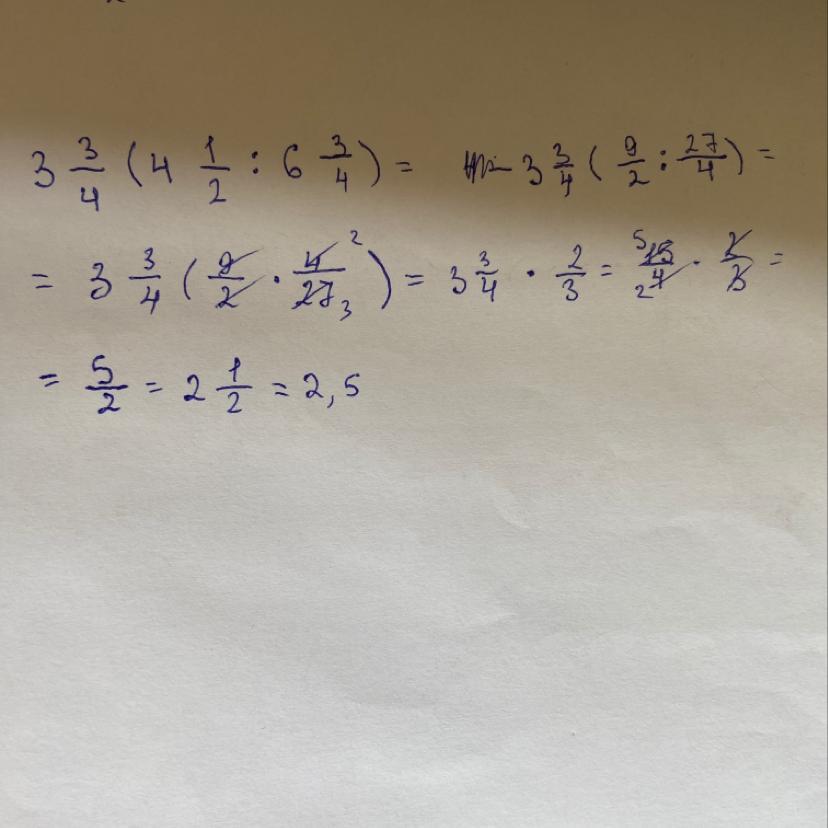 3 3/4 (4 1/2 : 6 3/4) = 3 3/4 (9/2 : 27/4) =
= 3 3/4 (9/2 · 4/27 2 3) = 3 3/4 · 2/3 = 5 15/4 2 · 2/3 =
= 5/2 = 2 1/2 = 2,5